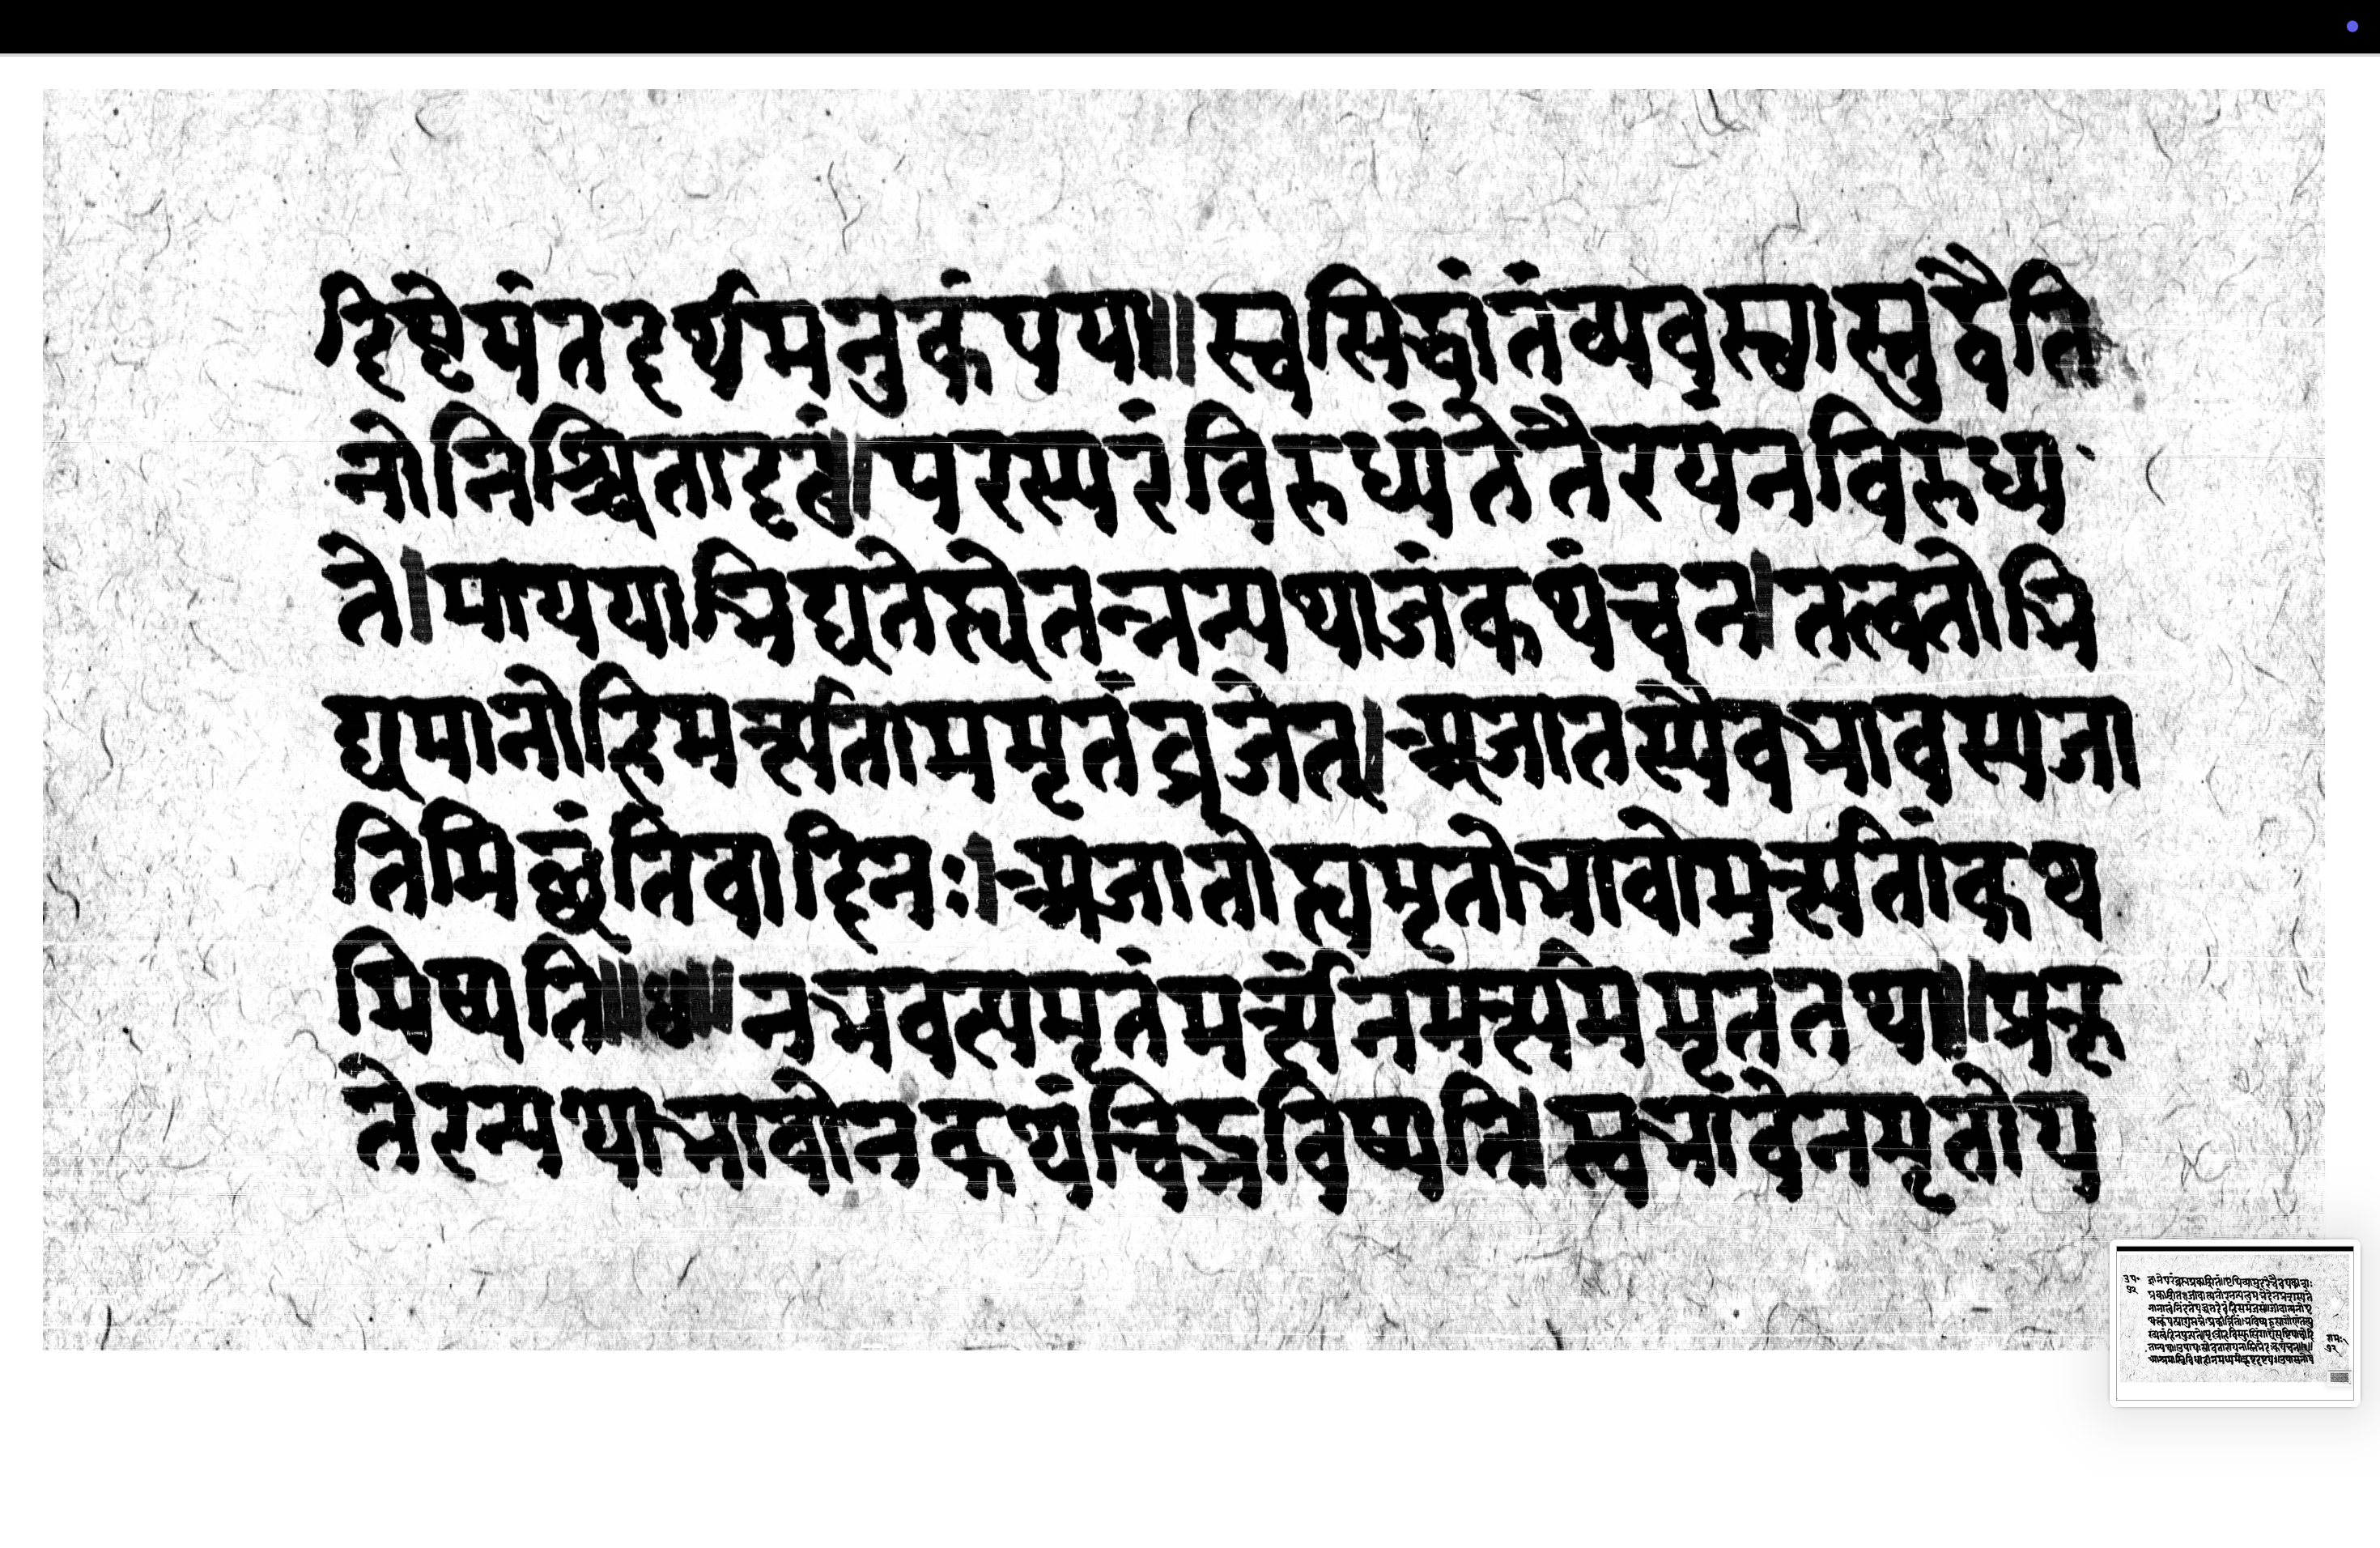 दिष्टेयंतदर्थमनुकंपया॥स्वसिद्धांतंव्यवस्थास्तुद्वैति
नोनिश्चितादृढं॥परस्परंविरुध्यंतेतैरयंनविरुध्य
ते।माययाभिद्यतेह्येतन्नन्यथाजंकथंचन।तत्वतोभि
द्यमानोहिमर्त्यताममृतंव्रजेत्।अजातस्यैवभावस्यजा
तिमिछंतिवादिनः।अजातोह्यमृतोभावोमर्त्यतांकथ
मिष्यति॥ध॥नभवत्यमृतंमर्त्यंनमर्त्यममृतंतथा॥प्रकृ
तेरन्यथाभावोनकथंचिद्भविष्यति।स्वभावेनमृतोय